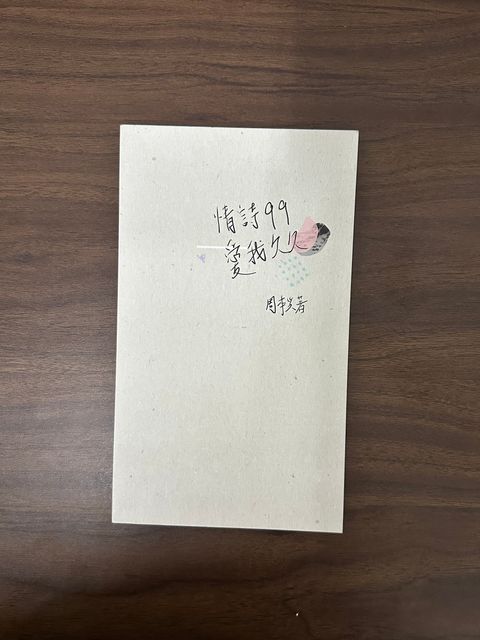 情詩99
愛我久久
周孝昊著